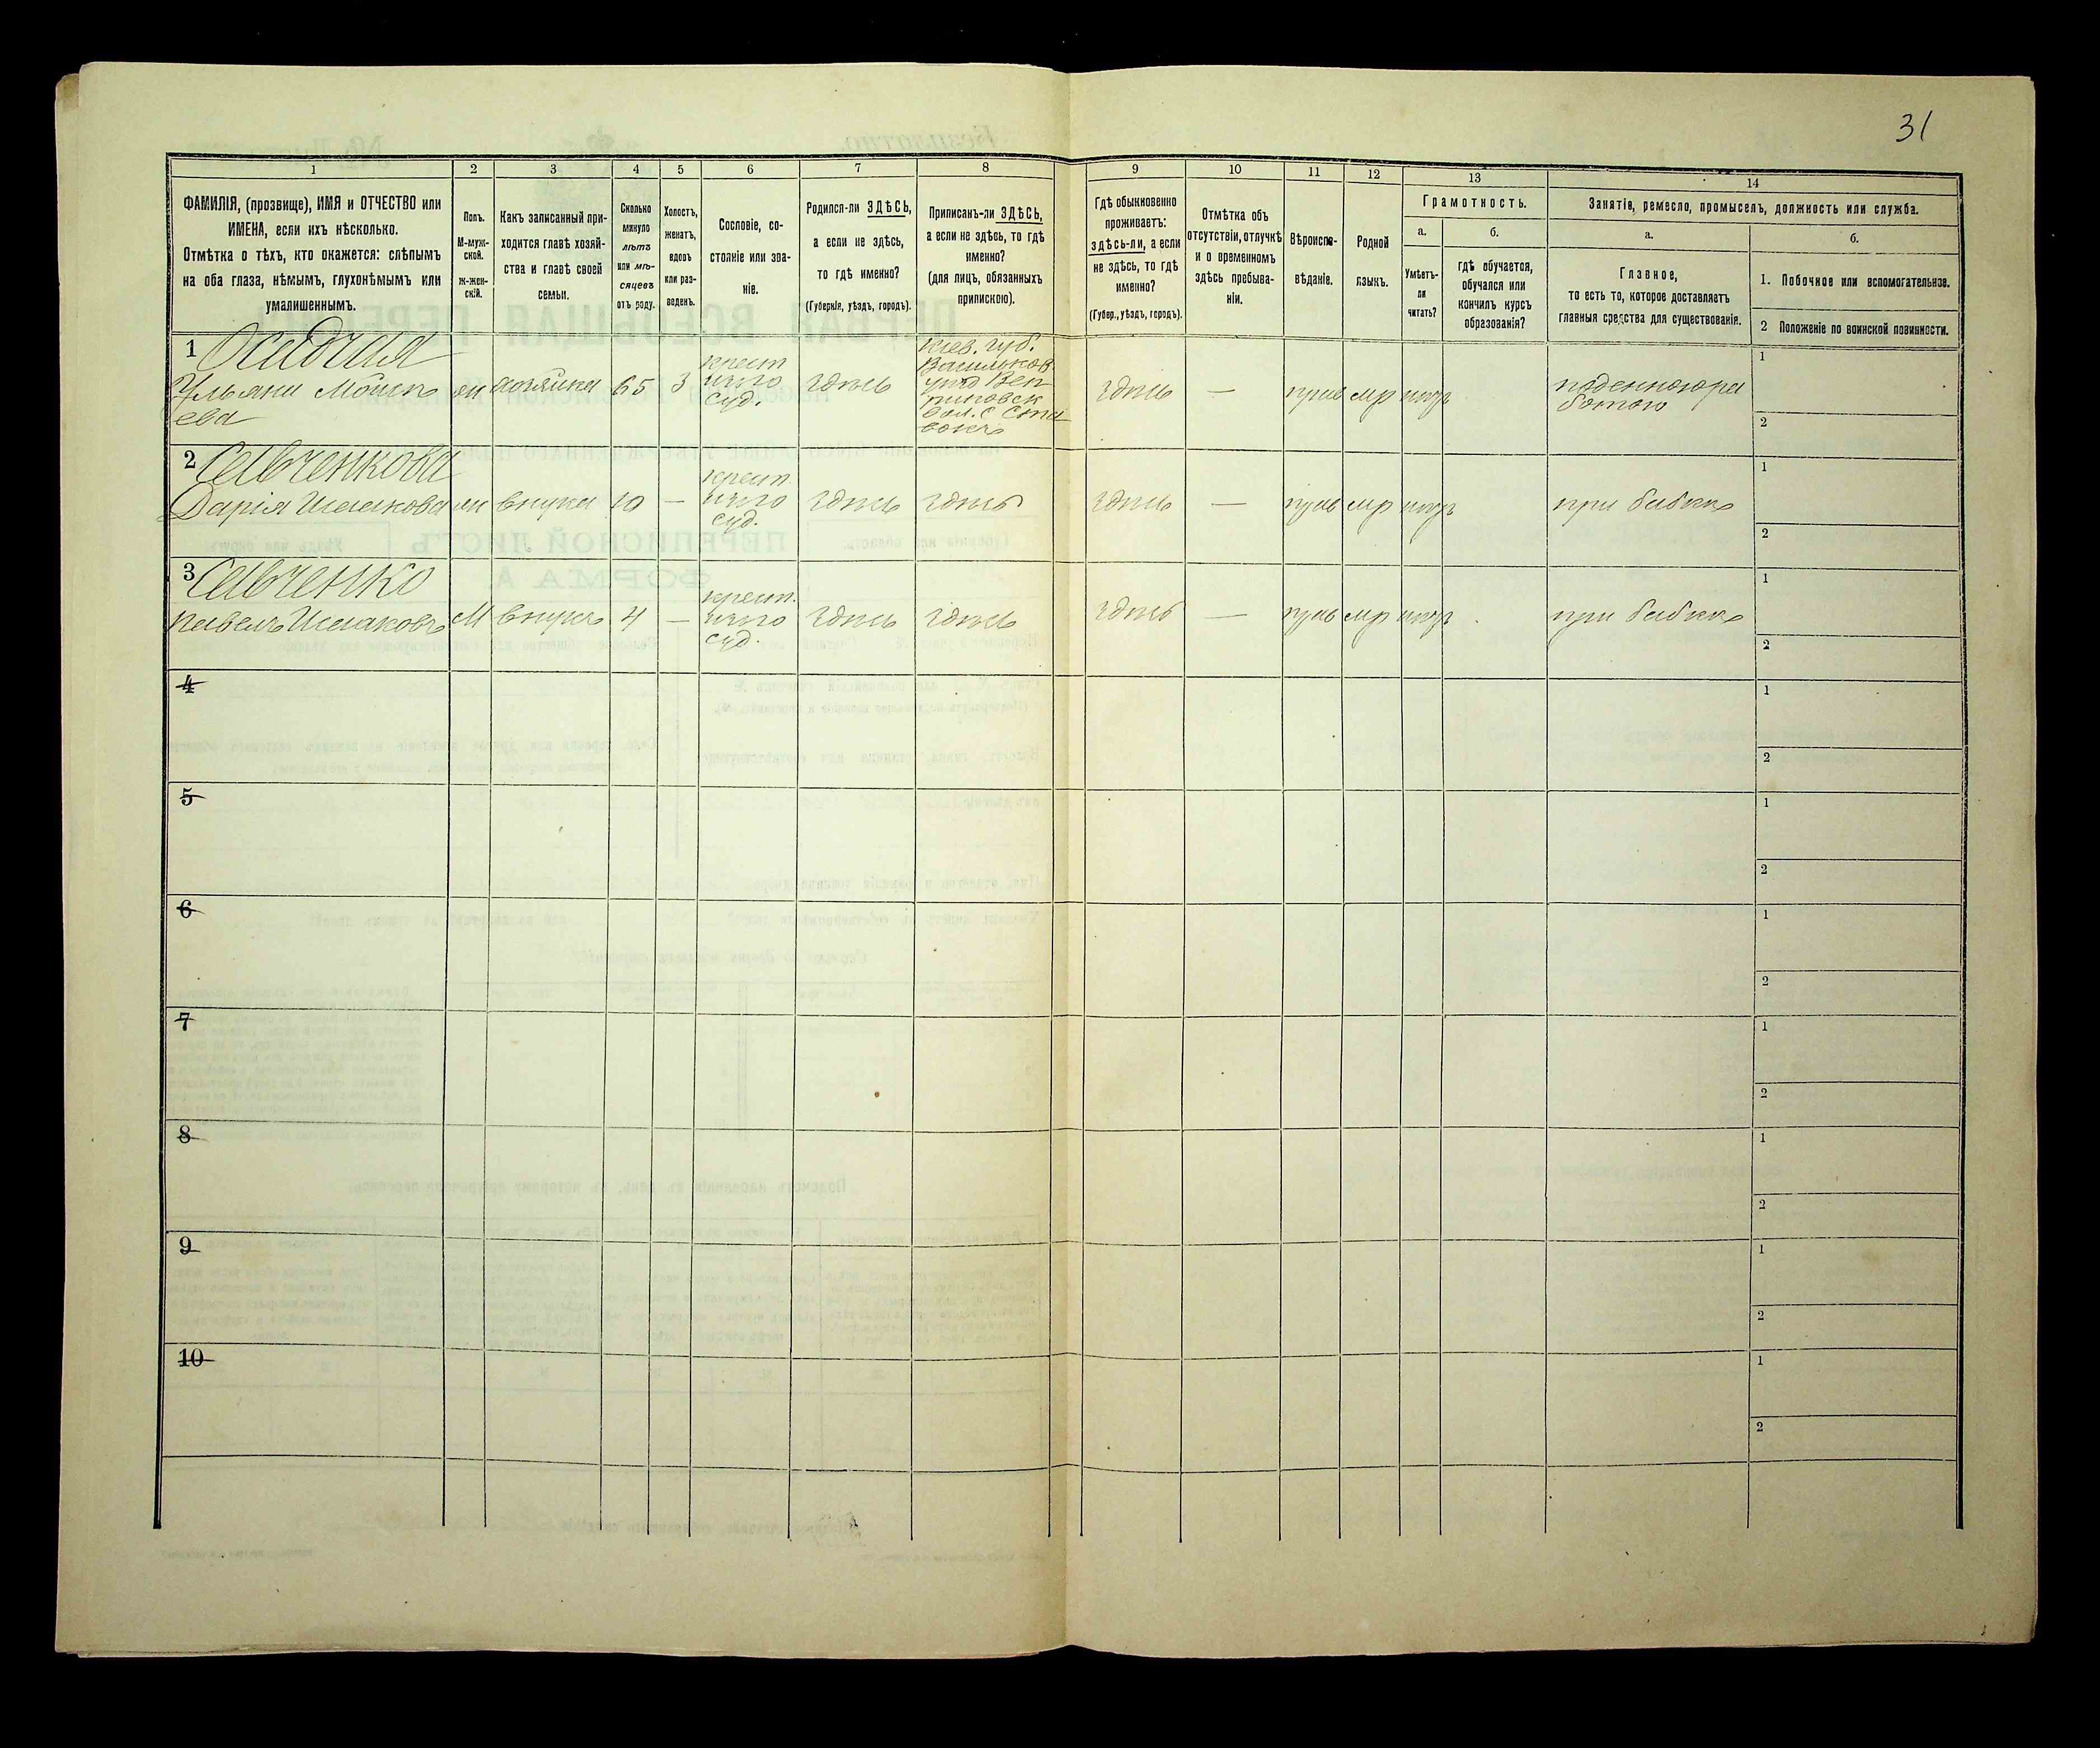 31
1
2
3
4
5
6
7
8
9
10
11
12
13
14
ФАМИЛІЯ, (прозвище), ИМЯ и ОТЧЕСТВО или
ИМЕНА, если ихъ нѣсколько.
Отмѣтка о тѣхъ, кто окажется: слѣпымъ
на оба глаза, нѣмымъ, глухонѣмымъ или
умалишеннымъ.
Полъ.
М-муж-
ской.
Ж-жен-
скій.
Какъ записанный при-
ходится главѣ хозяй-
ства и главѣ своей
семьи.
Сколько
минуло
лѣтъ
или мѣ-
сяцевъ
отъ роду.
Холостъ,
женатъ,
вдовъ
или раз-
веденъ.
Сословіе, со-
стояніе или зва-
ніе.
Родился-ли ЗДѢСЬ,
а если не здѣсь,
то гдѣ именно?
(Губернія, уѣздъ, городъ).
Приписанъ-ли ЗДѢСЬ,
а если не здѣсь, то гдѣ
именно?
(для лицъ, обязанныхъ
припискою).
Гдѣ обыкновенно
проживаетъ:
здѣсь-ли, а если
не здѣсь, то гдѣ
именно?
(Губер., уѣздъ, городъ).
Отмѣтка объ
отсутствіи, отлучкѣ
и о временномъ
здѣсь пребыва-
ніи.
Вѣроиспо-
вѣданіе.
Родной
языкъ.
Грамотность.
а.
Умѣетъ-
ли
читать?
б.
гдѣ обучается,
обучался или
кончилъ курсъ
образованія?
Занятіе, ремесло, промыселъ, должность или служба.
а.
Главное,
то есть то, которое доставляетъ
главныя средства для существованія.
б.
1. Побочное или вспомогательное.
2 Положеніе по воинской повинности.
1 Осадчая
Ульяна Мойсе
ева
ж
хозяйка
65
3
крест
суд.
здѣсь
Кіев. губ.
Васильков
уѣзд Веп
риковск
вол. с Ста
вокъ
здѣсь
—
прав
мр
нтъ
поденною ра
ботою
1
2
2 Савченкова
Дарія Исаакова
ж
внука
10
—
крест.
суд.
здѣсь
здѣсь
здѣсь
—
прав
мр
нтъ
при бабкѣ
1
2
3 Савченко
Павелъ Исааковъ
М
внукъ
4
—
крест.
суд.
здѣсь
здѣсь
здѣсь
—
прав
мр
нтъ
при бабкѣ
1
2
4
1
2
5
1
2
6
1
2
7
1
2
8
1
2
9
1
2
10
1
2